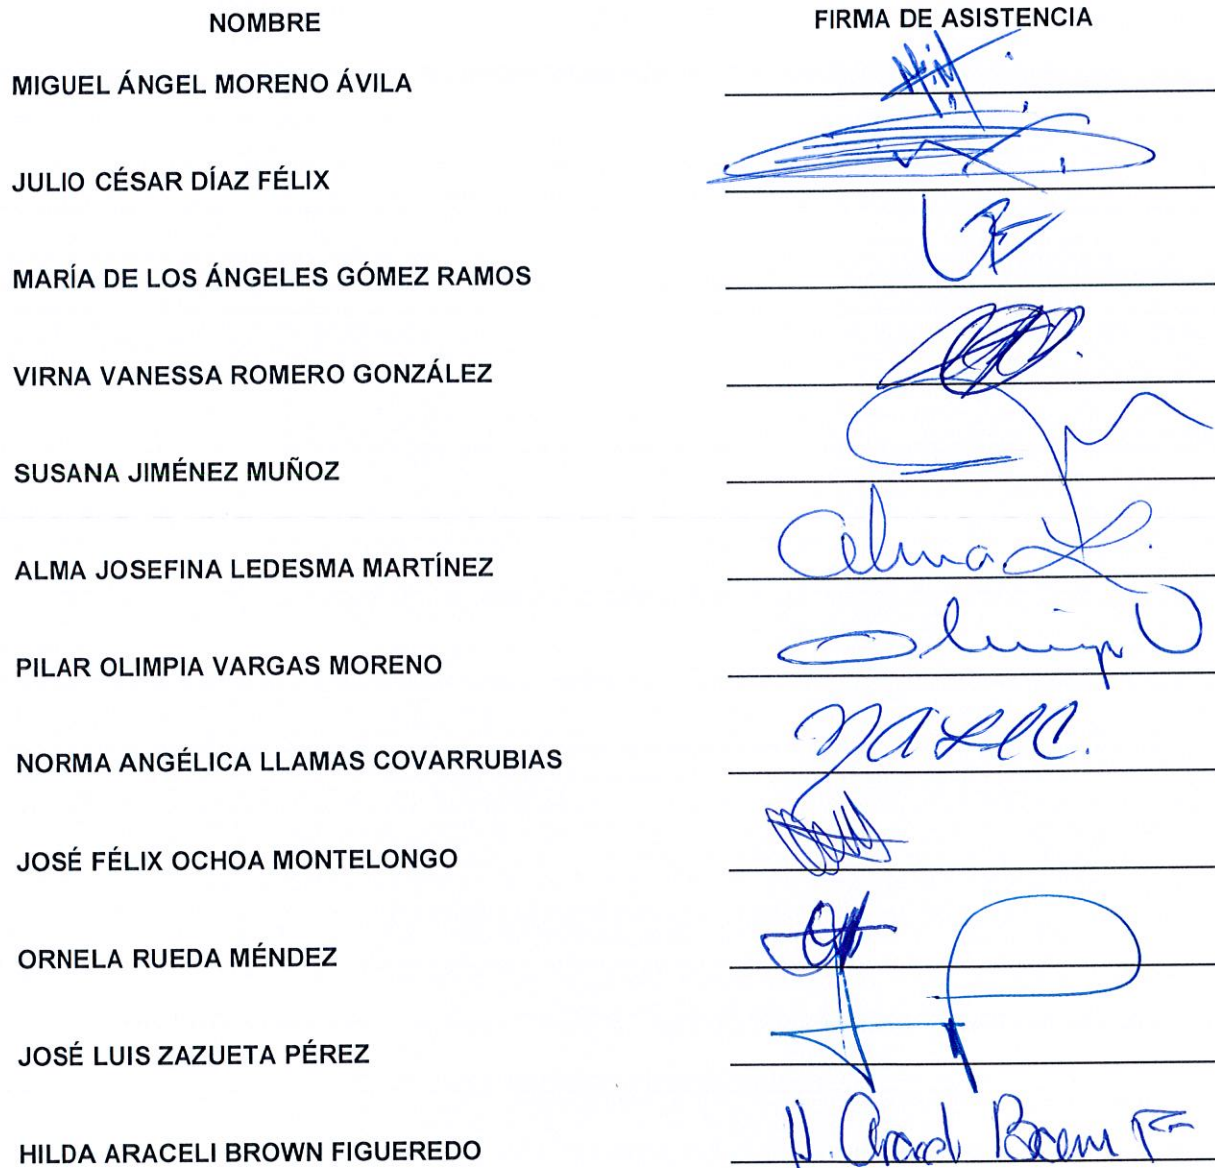 NOMBRE FIRMA DE ASISTENCIA
MIGUEL ÁNGEL MORENO ÁVILA
JULIO CÉSAR DÍAZ FÉLIX
MARÍA DE LOS ÁNGELES GÓMEZ RAMOS
VIRNA VANESSA ROMERO GONZÁLEZ
SUSANA JIMÉNEZ MUÑOZ
ALMA JOSEFINA LEDESMA MARTÍNEZ Alma L.
PILAR OLIMPIA VARGAS MORENO
NORMA ANGÉLICA LLAMAS COVARRUBIAS
JOSÉ FÉLIX OCHOA MONTELONGO
ORNELA RUEDA MÉNDEZ
JOSÉ LUIS ZAZUETA PÉREZ
HILDA ARACELI BROWN FIGUEREDO H.